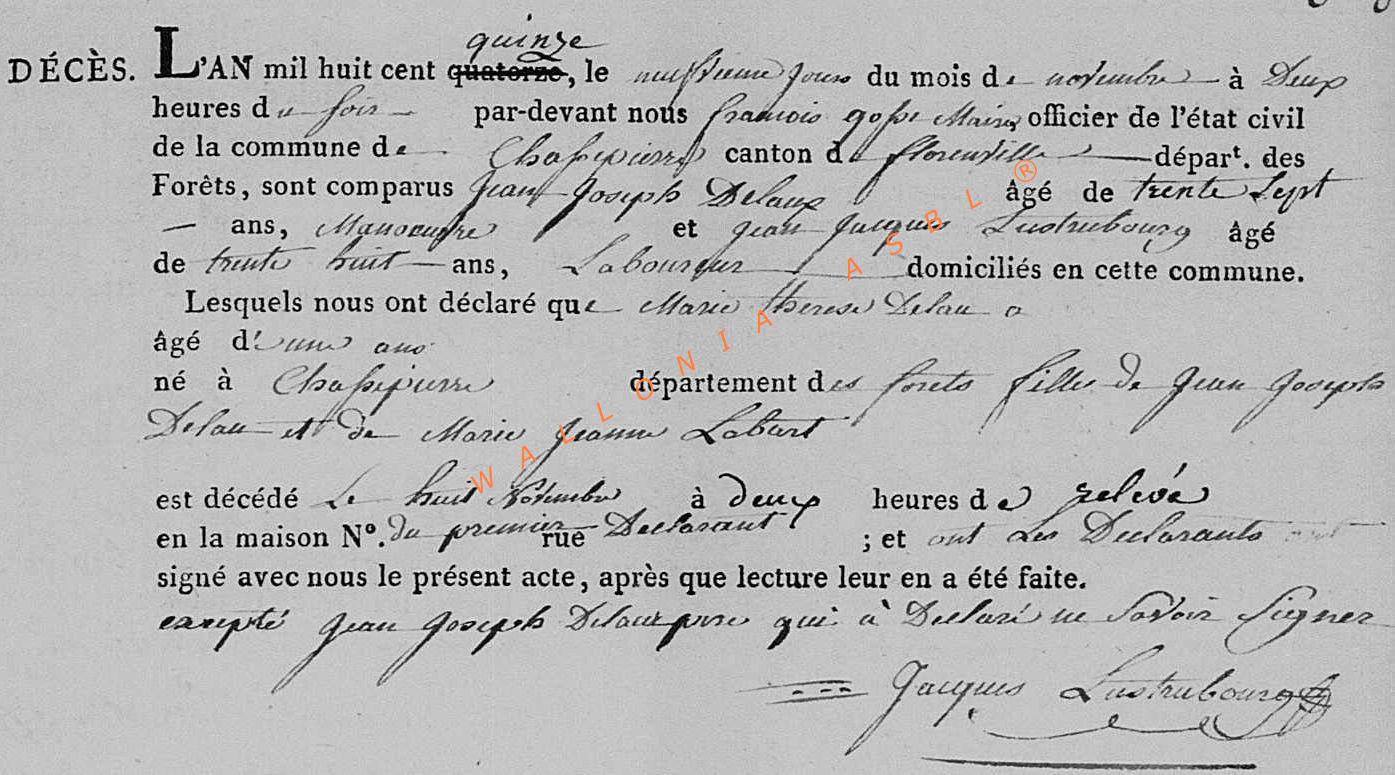 quinze
DÉCÈS. L'AN mil huit cent quatorze, le neufvieme jour du mois de novembre à Deux
heures du soir par-devant nous francois gosse Maire officier de l'état civil
de la commune de Chassepierre canton de florenville départ. des
Forêts, sont comparus Jean Joseph Delaux âgé de trente Sept
— ans, Manoeuvre et jean Jacques Lustrubourg âgé
de trente huit ans, Laboureur domiciliés en cette commune.
Lesquels nous ont déclaré que Marie therese Delau a
âgé d'une ans
né à Chassepierre département des forets fille de Jean Joseph
Delau et de Marie Jeanne Laburt
est décédé Le huit Novembre à deux heures de relevée
en la maison N°. du premier rue Declarant ; et ont Les Declarants ont
signé avec nous le présent acte, après que lecture leur en a été faite.
excepté Jean Joseph Delaux pere qui à Declaré ne Savoir Signer
Jacques Lustrubourg
WALLONIA ASBL ®